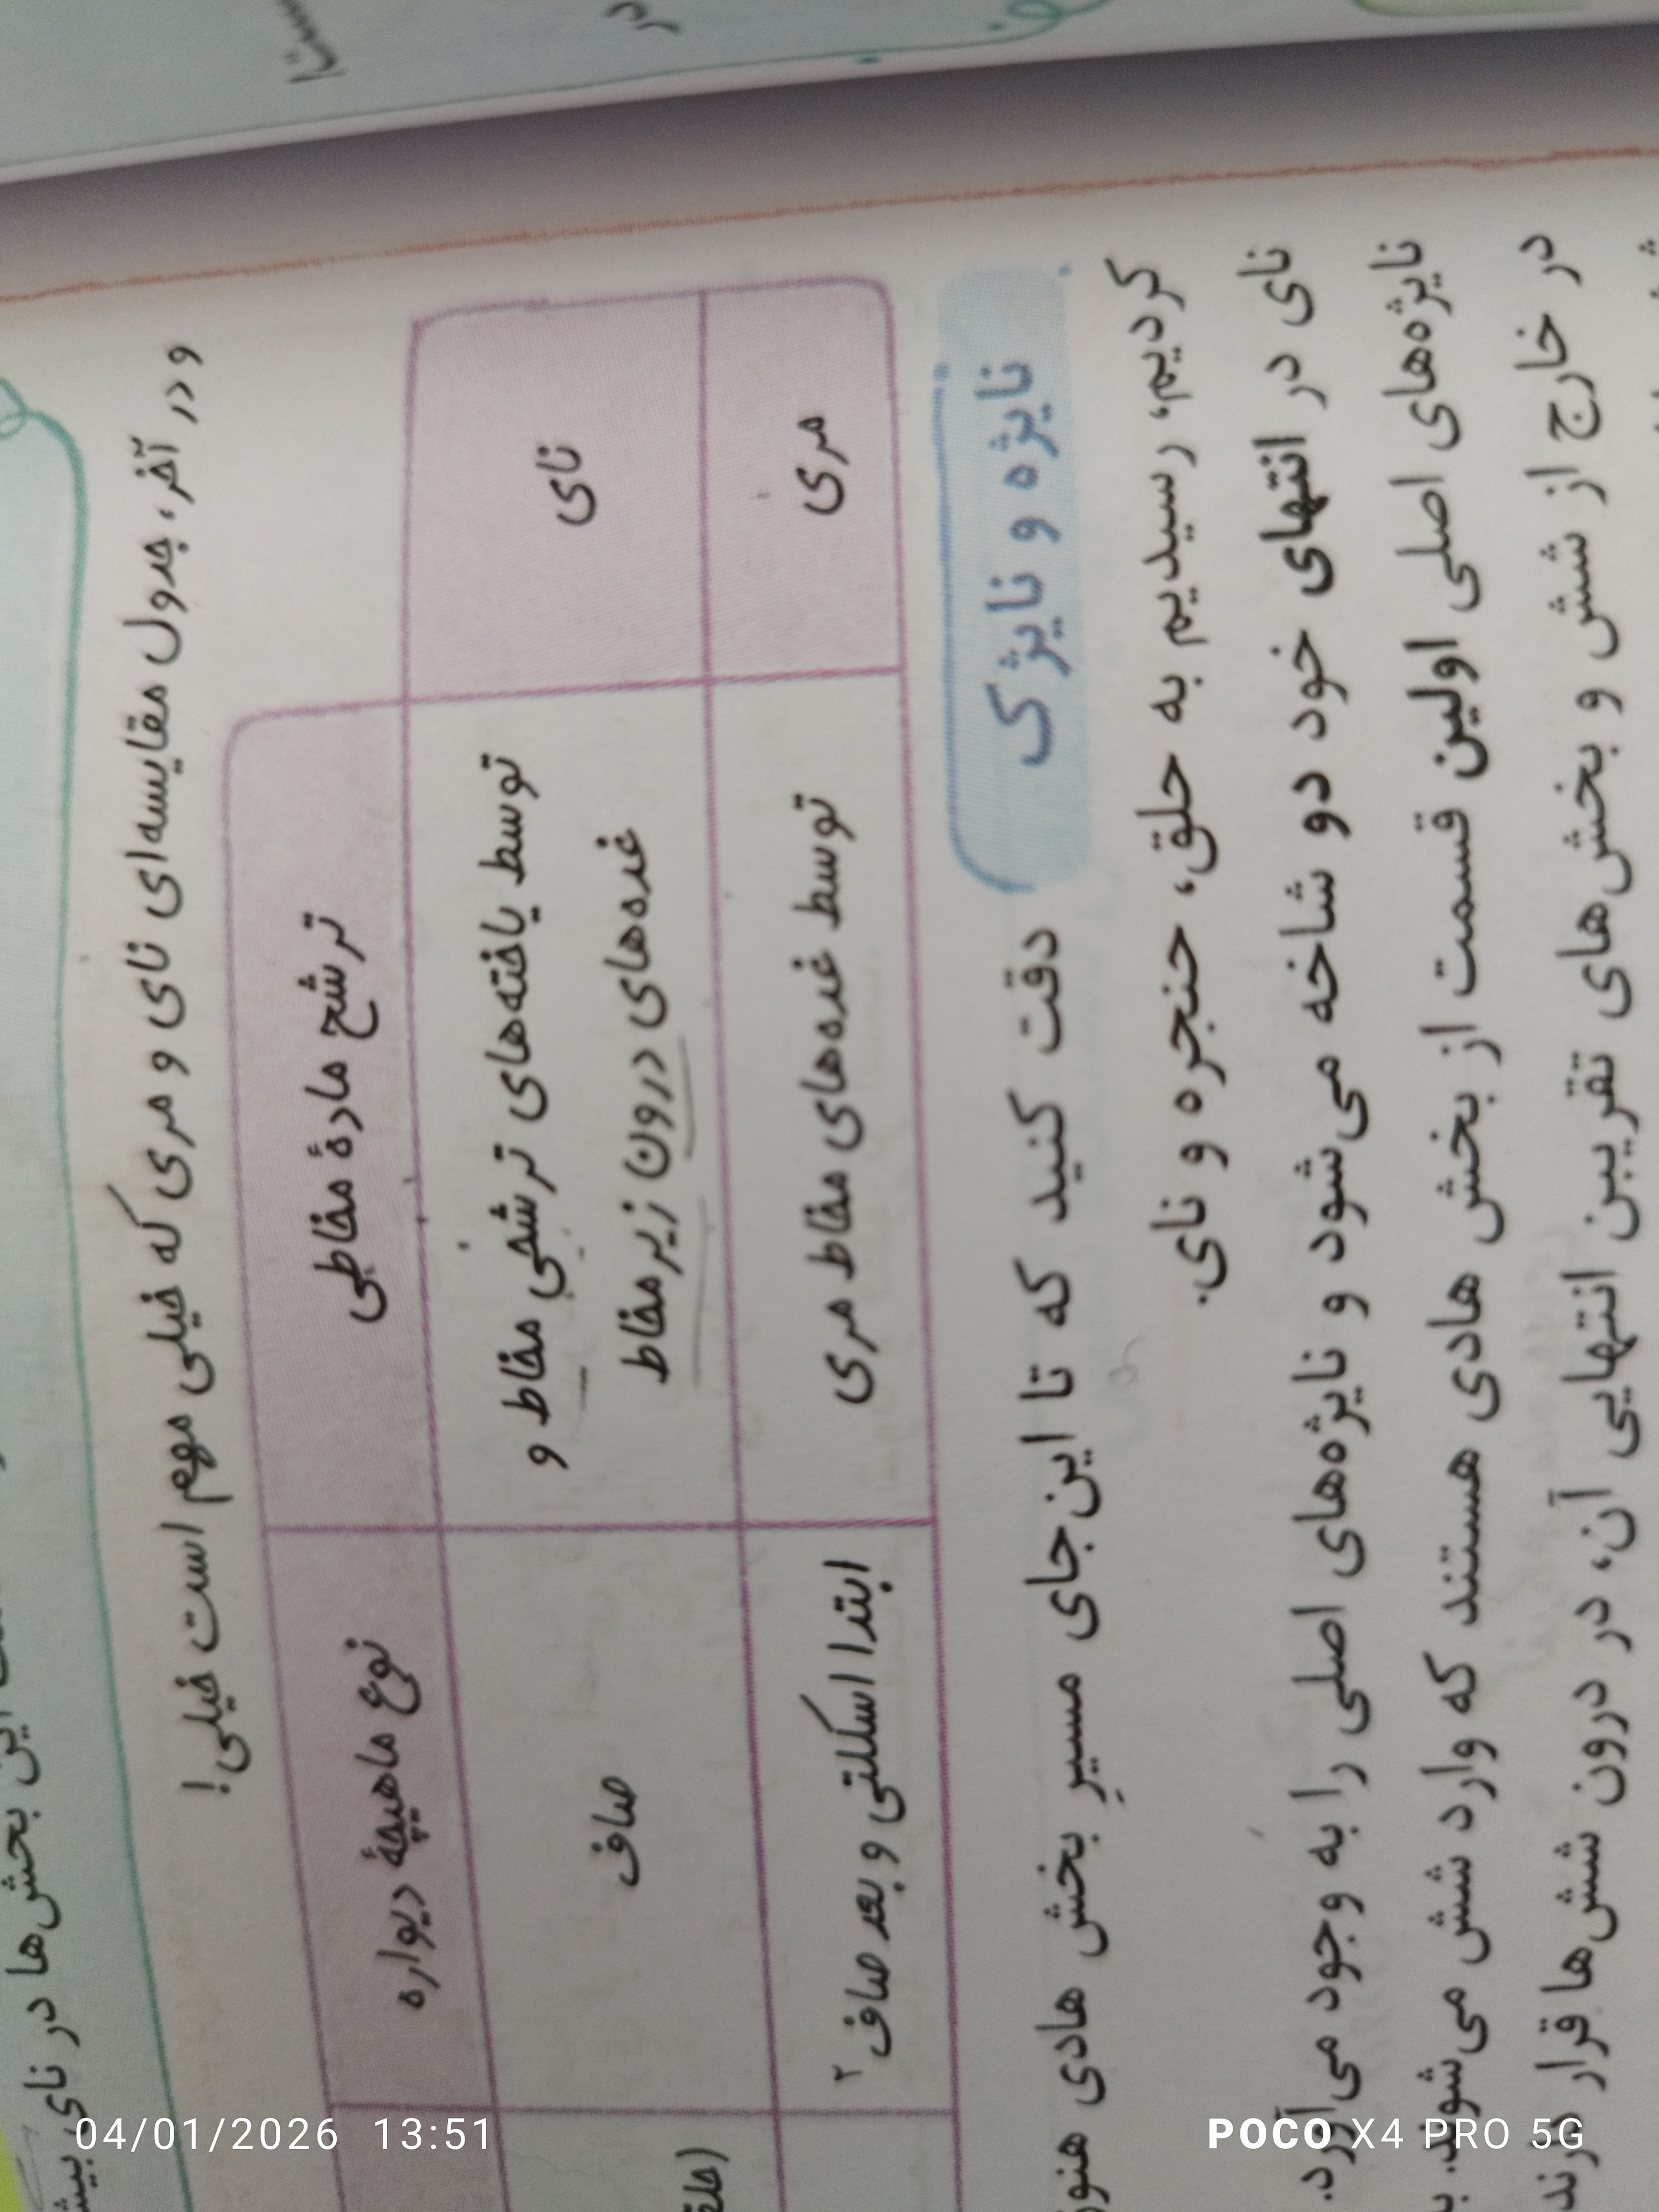 و در آخر، جدول مقایسه‌ای نای و مری که خیلی مهم است خیلی!
ترشح مادهٔ مخاطی
نوع ماهیچهٔ دیواره
نای
توسط یاخته‌های ترشحی مخاط و
غده‌های درون زیرمخاط
صاف
مری
توسط غده‌های مخاط مری
ابتدا اسکلتی و بعد صاف ۲
نایژه و نایژک
دقت کنید که تا این‌جای مسیرِ بخش هادی هنوز
کردیم، رسیدیم به حلق، حنجره و نای.
نای در انتهای خود دو شاخه می‌شود و نایژه‌های اصلی را به وجود می‌آورد.
نایژه‌های اصلی اولین قسمت از بخش هادی هستند که وارد شش می‌شوند.
در خارج از شش و بخش‌های تقریبن انتهایی آن، در درون شش‌ها قرار دارند
بخش‌ها در نای
در
04/01/2026 13:51
POCO X4 PRO 5G